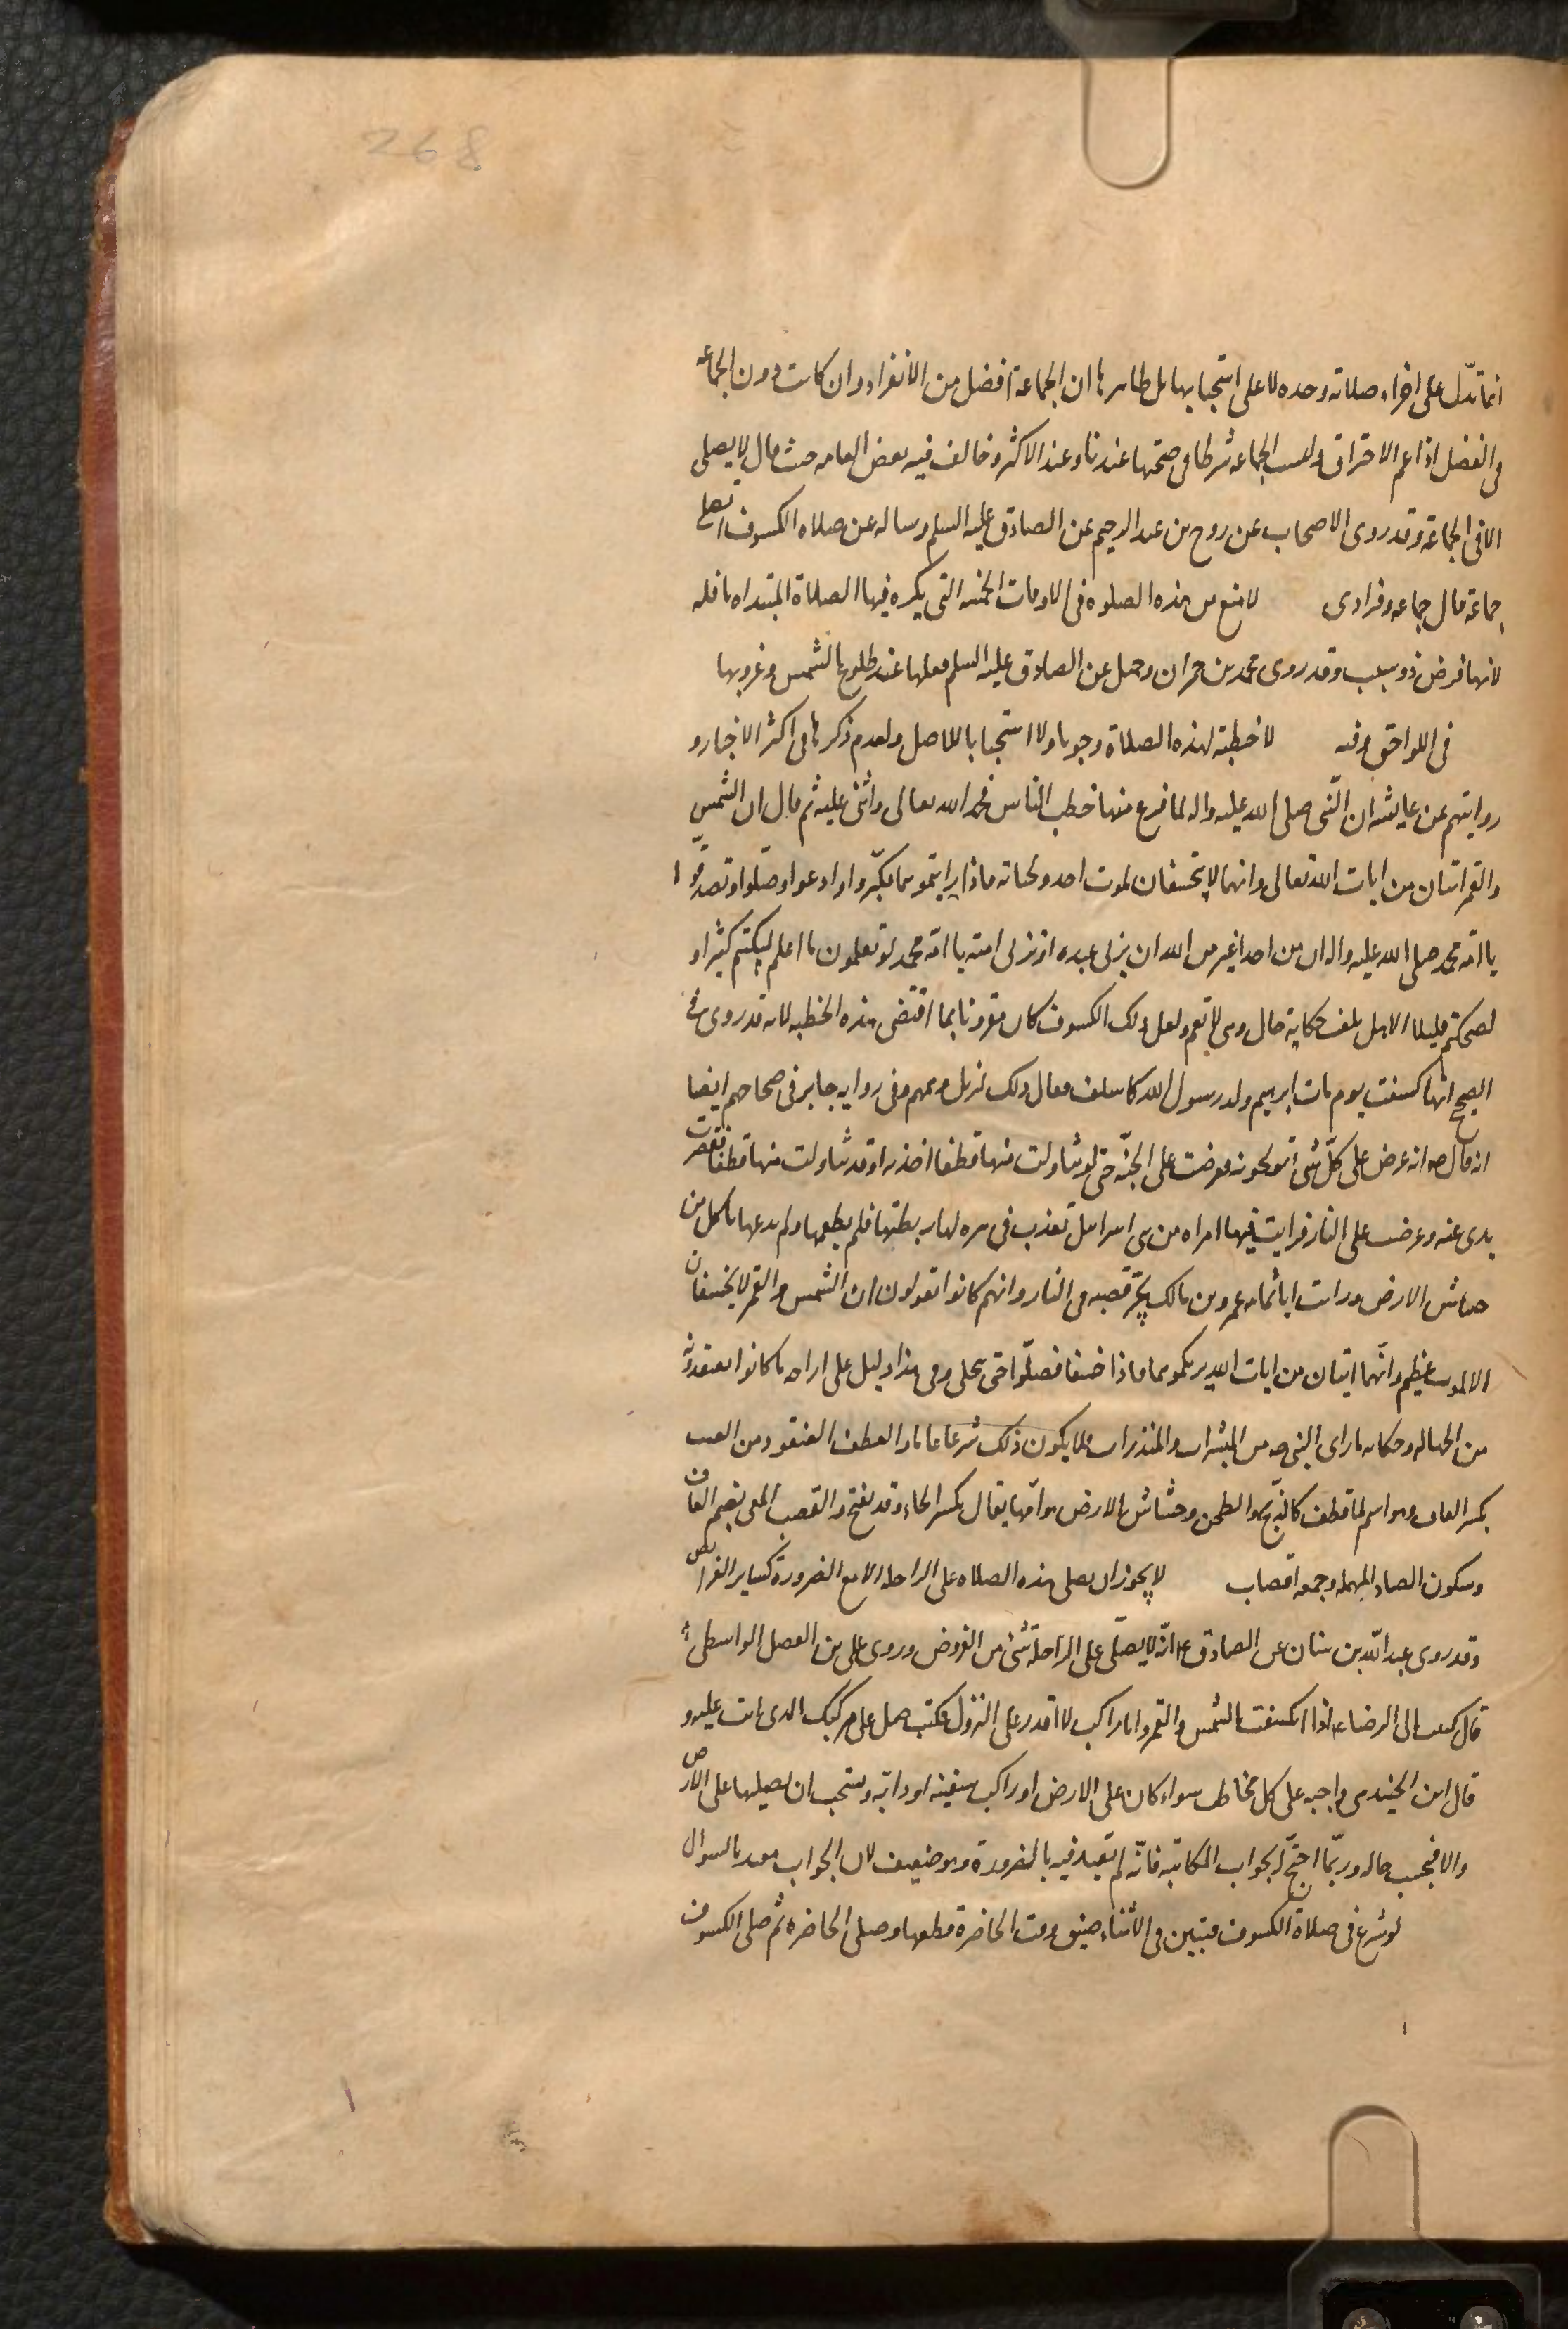 268
انما تدل على اجزاء صلاته وحده لا على استحبابها بل ظاهرها ان الجماعة افضل من الانفراد وان كانت دون الجماعه
فى الفضل اذا عم الاحتراق وليست الجماعه شرطا فى صحتها عندنا وعند الاكثر وخالف فيه بعض العامه حيث قال لا يصلى
الا فى الجماعة وقد روى الاصحاب عن روح بن عبد الرحيم عن الصادق عليه السلم وساله عن صلاه الكسوف تصلى
جماعة قال جماعه وفرادى لا منع من هذه الصلوه فى الاوقات الخمسه التى يكره فيها الصلاة المبتداه نافله
لانها فرض ذو سبب وقد روى محمد بن حمران وجميل عن الصادق عليه السلم فعلها عند طلوع الشمس وغروبها
فى اللواحق وفيه لا خطبة لهذه الصلاة وجوبا ولا استحبابا للاصل ولعدم ذكرها فى اكثر الاخبار و
روايتهم عن عايشه ان النبى صلى الله عليه واله لما فرغ منها خطب الناس فحمد الله تعالى واثنى عليه ثم قال ان الشمس
والقمر ايتان من ايات الله تعالى وانهما لا يخسفان لموت احد ولحياته فاذا رايتموهما فكبروا وادعوا وصلوا وتصدقوا
يا امة محمد صلى الله عليه واله ان من احد اغير من الله ان يزنى عبده او تزنى امته يا امة محمد لو تعلمون ما اعلم لبكيتم كثيرا و
لضحكتم قليلا الا هل بلغت حكاية حال وهى لا تعم ولعل ذلك الكسوف كان مقرونا بما اقتضى هذه الخطبه لانه قد روى فى
الصحيح انها كسفت يوم مات ابرهيم ولد رسول الله كما سلف فقال ذلك ليزيل وهمهم وفى روايه جابر فى صحاحهم ايضا
انه قال ص انه عرض على كل شئ تولجونه فعرضت على الجنة حتى لو تناولت منها قطفا اخذته او قد تناولت منها قطفا فقصرت
يدى عنه وعرضت على النار فرايت فيها امراه من بنى اسرائيل تعذب فى هره لها ربطتها فلم يطعمها ولم تدعها تاكل من
خشاش الارض ورايت ابا ثمامه عمرو بن مالك يجر قصبه فى النار وانهم كانوا تقولون ان الشمس والقمر لا يخسفان
الا لموت عظيم وانهما ايتان من ايات الله يريكموهما فاذا خسفا فصلوا حتى تنجلى وفى هذا دليل على ازاحه ما كانوا يعتقدونه
من الجهاله وحكايه ما راى النبى ص من المبشرات والمنذرات فلا يكون ذلك شرعا عاما والقطف العنقود من العنب
بكسر القاف وهو اسم لما قطف كالذبح والطحن وخشاش الارض هوامها يقال بكسر الخاء وقد يفتح والقصب المعى بضم القاف
وسكون الصاد المهمله وجمعه اقصاب لا يجوز ان يصلى هذه الصلاه على الراحله الا مع الضرورة كساير الفرائض
وقد روى عبد الله بن سنان عن الصادق ع انه لا يصلى على الراحلة شئ من الفروض وروى على بن الفضل الواسطى
قال كتبت الى الرضا ع اذا انكسفت الشمس والقمر وانا راكب لا اقدر على النزول فكتب صل على مركبك الذى انت عليه و
قال ابن الجنيد هى واجبه على كل مخاطب سواء كان على الارض او راكب سفينه او دابه ويستحب ان يصليها على الارض
والا فبحسب حاله وربما احتج له بجواب المكاتبه فانه لم يقيد فيه بالضرورة وهو ضعيف لان الجواب مقيد بالسوال
لو شرع فى صلاة الكسوف فتبين فى الاثناء ضيق وقت الحاضرة قطعها وصلى الحاضره ثم صلى الكسوف